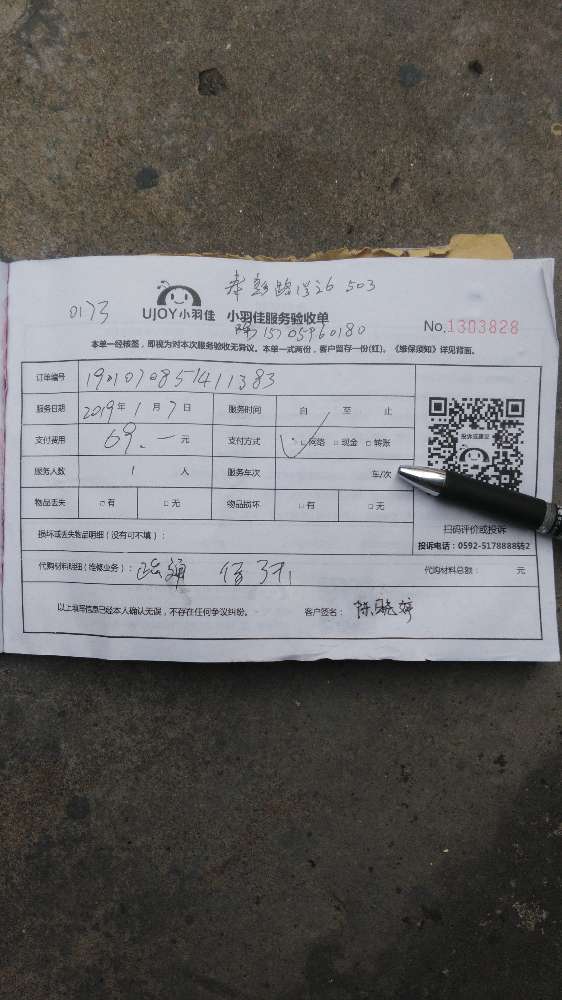 503
0173
UJOY小羽佳 小羽佳服务验收单
15705960180
No.1303828
本单一经核签，即视为对本次服务验收无异议。本单一式两份，客户留存一份(红)。《维保须知》详见背面。
订单编号 190107085141 1383
服务日期 2019年1月7日 服务时间 自 至 止
支付费用 69.一元 支付方式 □网络 □现金 □转账
投诉或建议
服务人数 1 人 服务车次 车/次
物品丢失 □有 □无 物品损坏 □有 □无
扫码评价或投诉
损坏或丢失物品明细（没有可不填）：
投诉电话：0592-5178888转2
代购材料明细（维修业务）：疏通 代购材料总额： 元
以上填写信息已经本人确认无误，不存在任何争议纠纷。 客户签名：陈晓婷